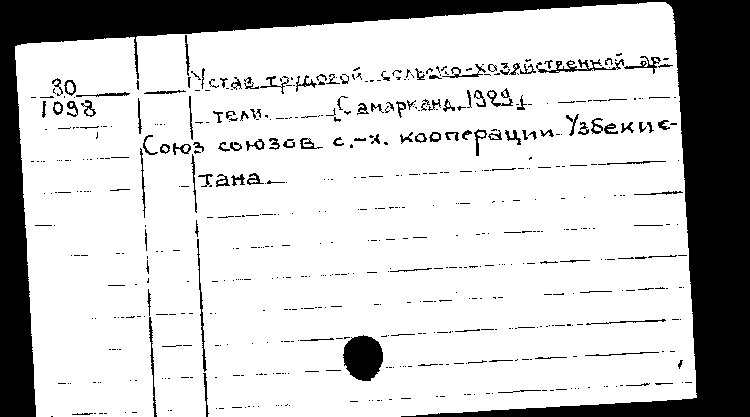 80
1098
Устав трудовой сельско-хозяйственной ар-
тели. [Самарканд, 1929]
Союз союзов с.-х. кооперации Узбекис-
тана.